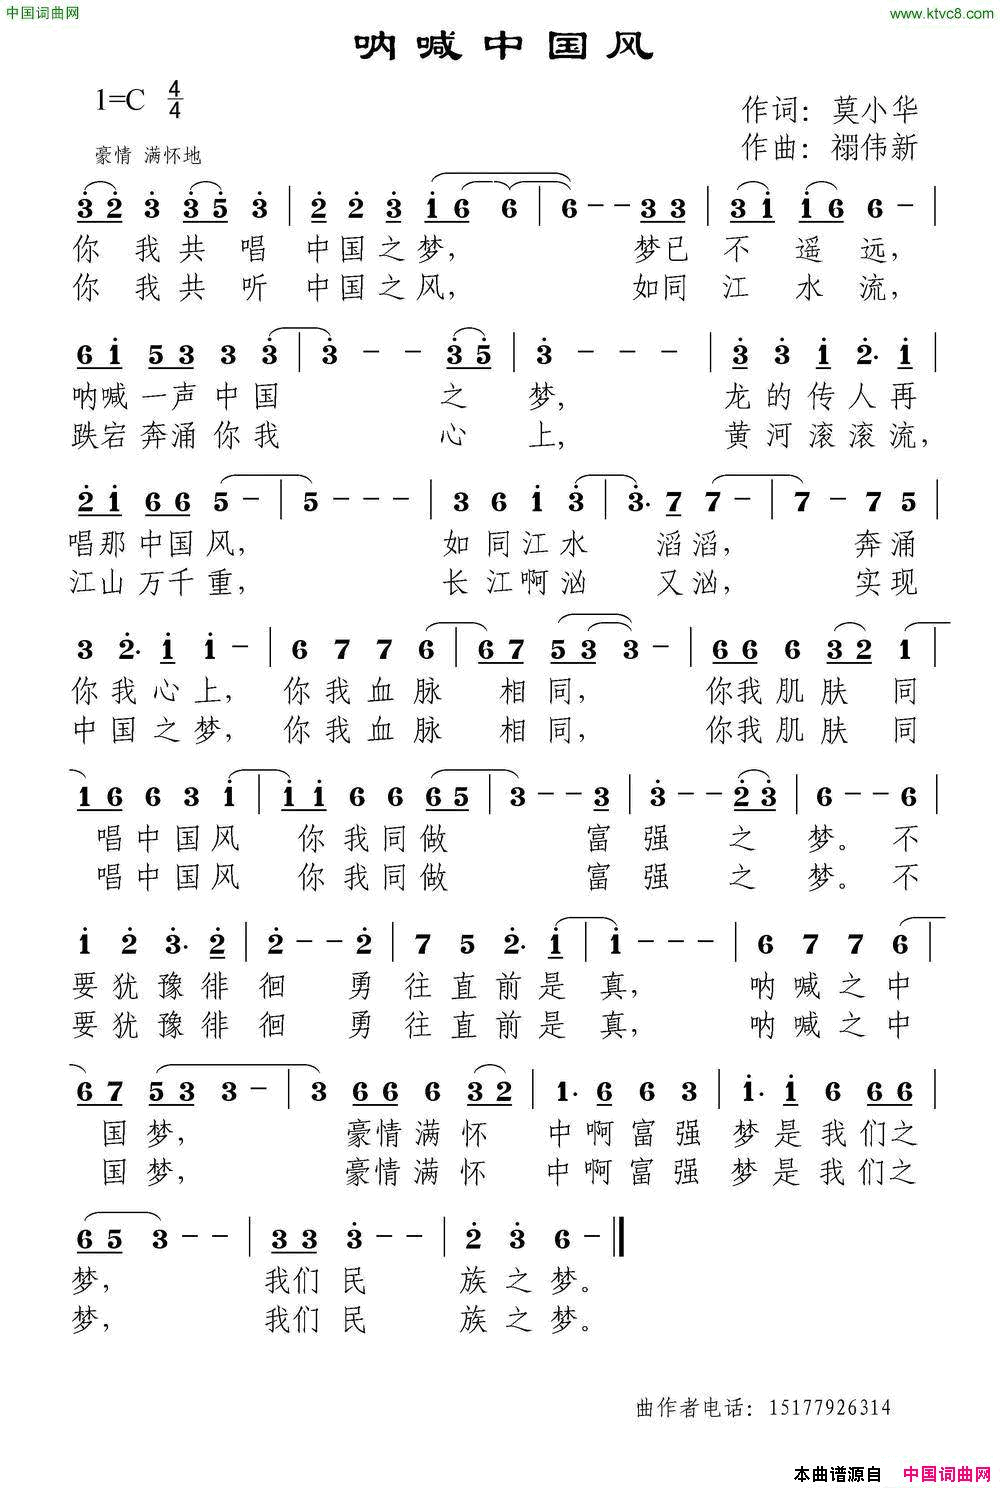 中国词曲网
www.ktvc8.com
呐喊中国风
1=C 4/4
作词：莫小华
豪情 满怀地
作曲：禤伟新
3 2 3 3 5 3 | 2 2 3 1 6 6 | 6 - - 3 3 | 3 1 1 6 6 - |
你 我 共 唱 中国之梦， 梦已 不 遥 远，
你 我 共 听 中国之风， 如同 江 水 流，
6 1 5 3 3 3 | 3 - - 3 5 | 3 - - - | 3 3 1 2· 1 |
呐喊一声中国 之 梦， 龙的传人再
跌宕奔涌你我 心 上， 黄河滚滚流，
2 1 6 6 5 - | 5 - - - | 3 6 1 3 | 3· 7 7 - | 7 - 7 5 |
唱那中国风， 如同江水 滔滔， 奔涌
江山万千重， 长江啊汹 又汹， 实现
3 2· 1 1 - | 6 7 7 6 | 6 7 5 3 3 - | 6 6 6 3 2 1 |
你我心上， 你我血脉 相 同， 你我肌肤同
中国之梦， 你我血脉 相 同， 你我肌肤同
1 6 6 3 1 | 1 1 6 6 6 5 | 3 - - 3 | 3 - - 2 3 | 6 - - 6 |
唱中国风 你我同做 富 强 之 梦。不
唱中国风 你我同做 富 强 之 梦。不
1 2 3· 2 | 2 - - 2 | 7 5 2· 1 | 1 - - - | 6 7 7 6 |
要犹豫徘 徊 勇 往直前是 真， 呐喊之中
要犹豫徘 徊 勇 往直前是 真， 呐喊之中
6 7 5 3 3 - | 3 6 6 6 3 2 | 1· 6 6 3 | 1· 1 6 6 6 |
国 梦， 豪情满怀 中啊富强 梦是我们之
国 梦， 豪情满怀 中啊富强 梦是我们之
6 5 3 - - | 3 3 3 - - | 2 3 6 - ‖
梦， 我们民 族之梦。
梦， 我们民 族之梦。
曲作者电话：15177926314
本曲谱源自 中国词曲网